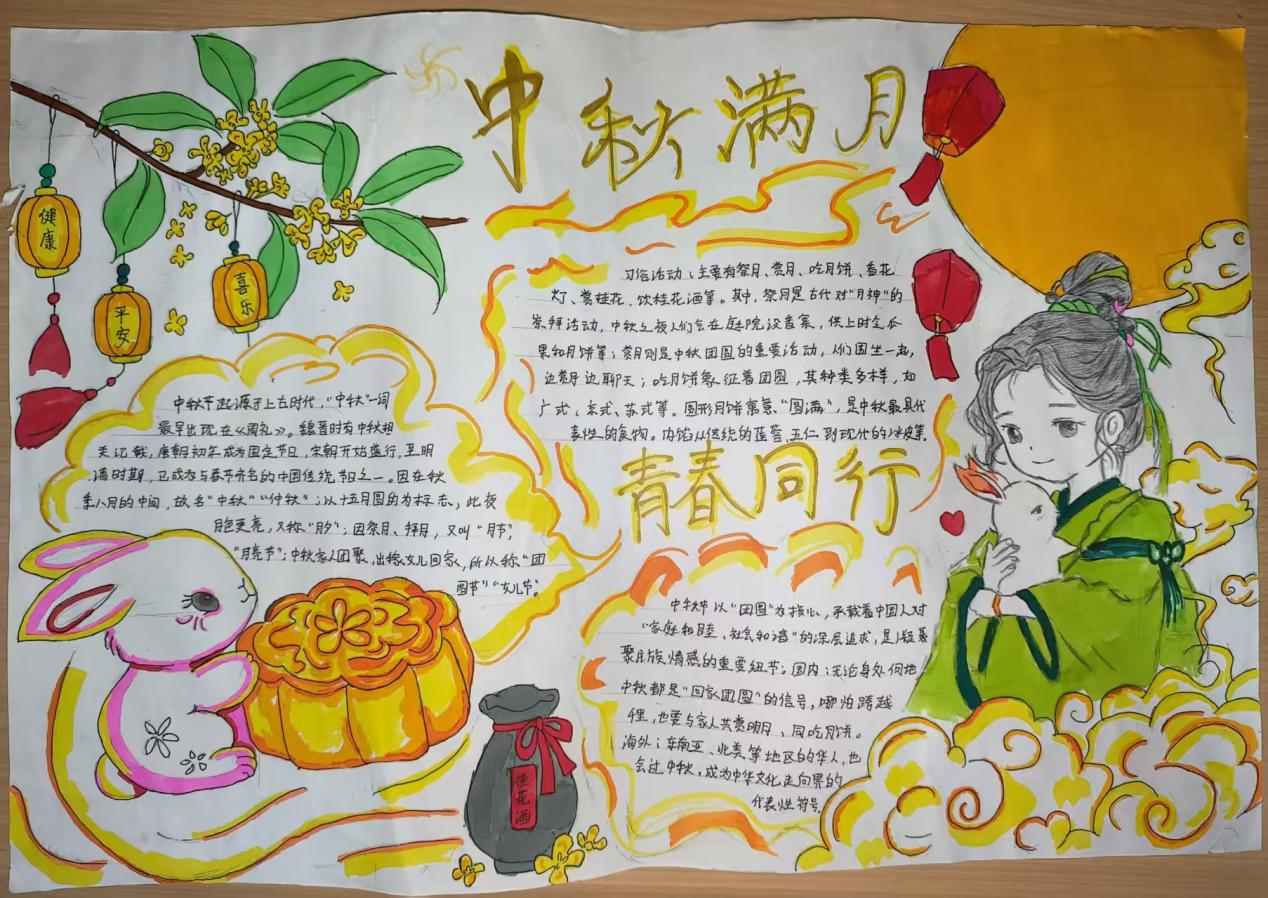 中秋满月
健康
平安
喜乐
习俗活动：主要有祭月、赏月、吃月饼、看花
灯、赏桂花、饮桂花酒等。其中，祭月是古代对“月神”的
崇拜活动，中秋之夜人们会在庭院设香案，供上时令瓜
果和月饼等；赏月则是中秋团圆的重要活动，人们围坐一起，
边赏月边聊天；吃月饼象征着团圆，其种类多样，如
广式、京式、苏式等。圆形月饼寓意“圆满”，是中秋最具代
表性的食物。内馅从传统的莲蓉、五仁到现代的冰皮等。
中秋节起源于上古时代，“中秋”一词
最早出现在《周礼》。魏晋时有中秋相
关记载，唐朝初年成为固定节日，宋朝开始盛行，至明
清时期，已成为与春节齐名的中国传统节日之一。因在秋
季八月的中间，故名“中秋”“仲秋”；以十五月圆的为标志，此夜
月色更亮，又称“月夕”；因祭月、拜月，又叫“月节”，
“月亮节”；中秋家人团聚，出嫁女儿回家，所以称“团
圆节”“女儿节”。
青春同行
中秋节以“团圆”为核心，承载着中国人对
“家庭和睦、社会和谐”的深层追求，是凝
聚民族情感的重要纽节；国内：无论身处何地
中秋都是“回家团圆”的信号，哪怕跨越
里，也要与家人共赏明月、同吃月饼。
海外：东南亚、北美等地区的华人，也
会过中秋，成为中华文化走向界的
代表性符号。
桂花酒